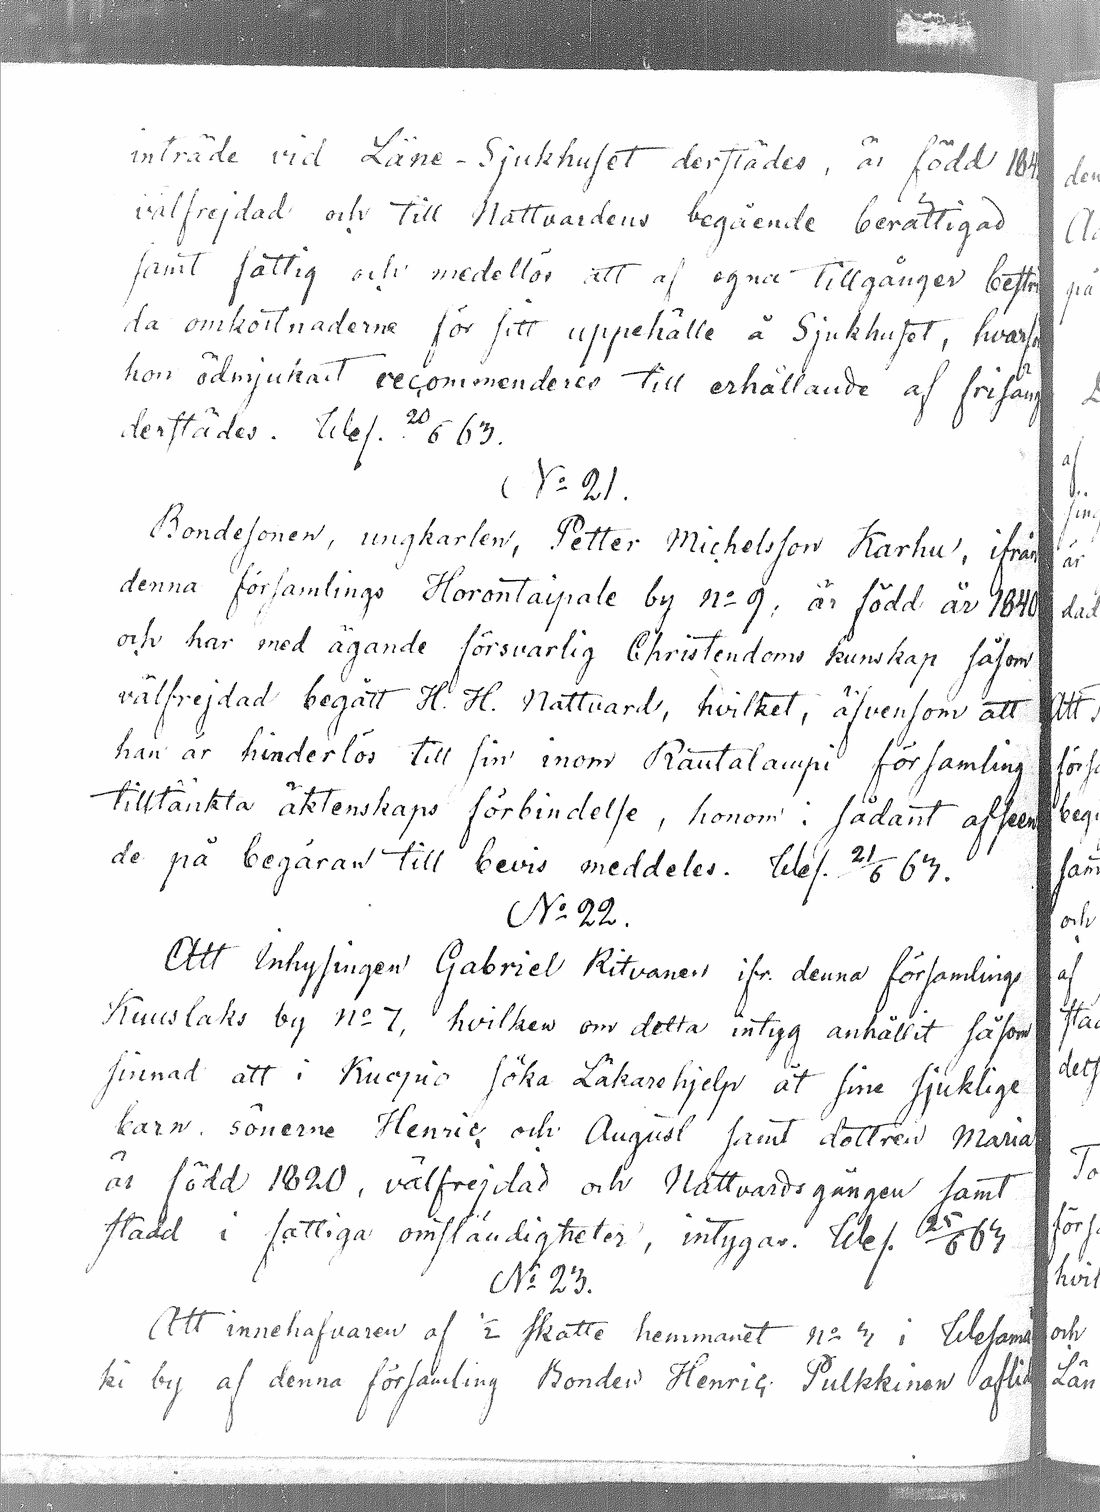 inträde vid Läne-Sjukhuset derstädes, är född 184
välfrejdad och till Nattvardens begående berättigad
samt fattig och medellös att af egna tillgångar bestri
da omkostnaderne för sitt uppehälle å Sjukhuset, hvarfö
hon ödmjukast recommenderes till erhållande af frisäng
derstädes. Wes. 20/6 63.
No 21.
Bondesonen, ungkarlen, Petter Michelsson Karhu, ifrån
denna församlings Horontaipale by no 9, är född år 1840
och har med ägande försvarlig Christendoms kunskap såsom
välfrejdad begått H. H. Nattvard, hvilket, äfvensom att
han är hinderlös till sin inom Rautalampi församling
tilltänkta äktenskaps förbindelse, honom i sådant afseen
de på begäran till bevis meddeles. Wes. 21/6 63.
No 22.
Att Inhysingen Gabriel Ritvanen ifr. denna församlings
Kuuslaks by no 7, hvilken om detta intyg anhållit såsom
sinnad att i Kuopio söka Läkarehjelp åt sine sjuklige
barn. sönerne Henric och August samt dottren Maria
är född 1820, välfrejdad och Nattvardsgången samt
stadd i fattiga omständigheter, intygas. Wes. 25/6 63
No 23.
Att innehafvaren af 1/2 skatte hemmanet no 3 i Wesamä
ki by af denna församling Bonden Henric Pulkkinen aflid
den
på
af
är
dad
Att
förs
begå
sam
och
af
stad
dets
To
förs
hvil
och
Län